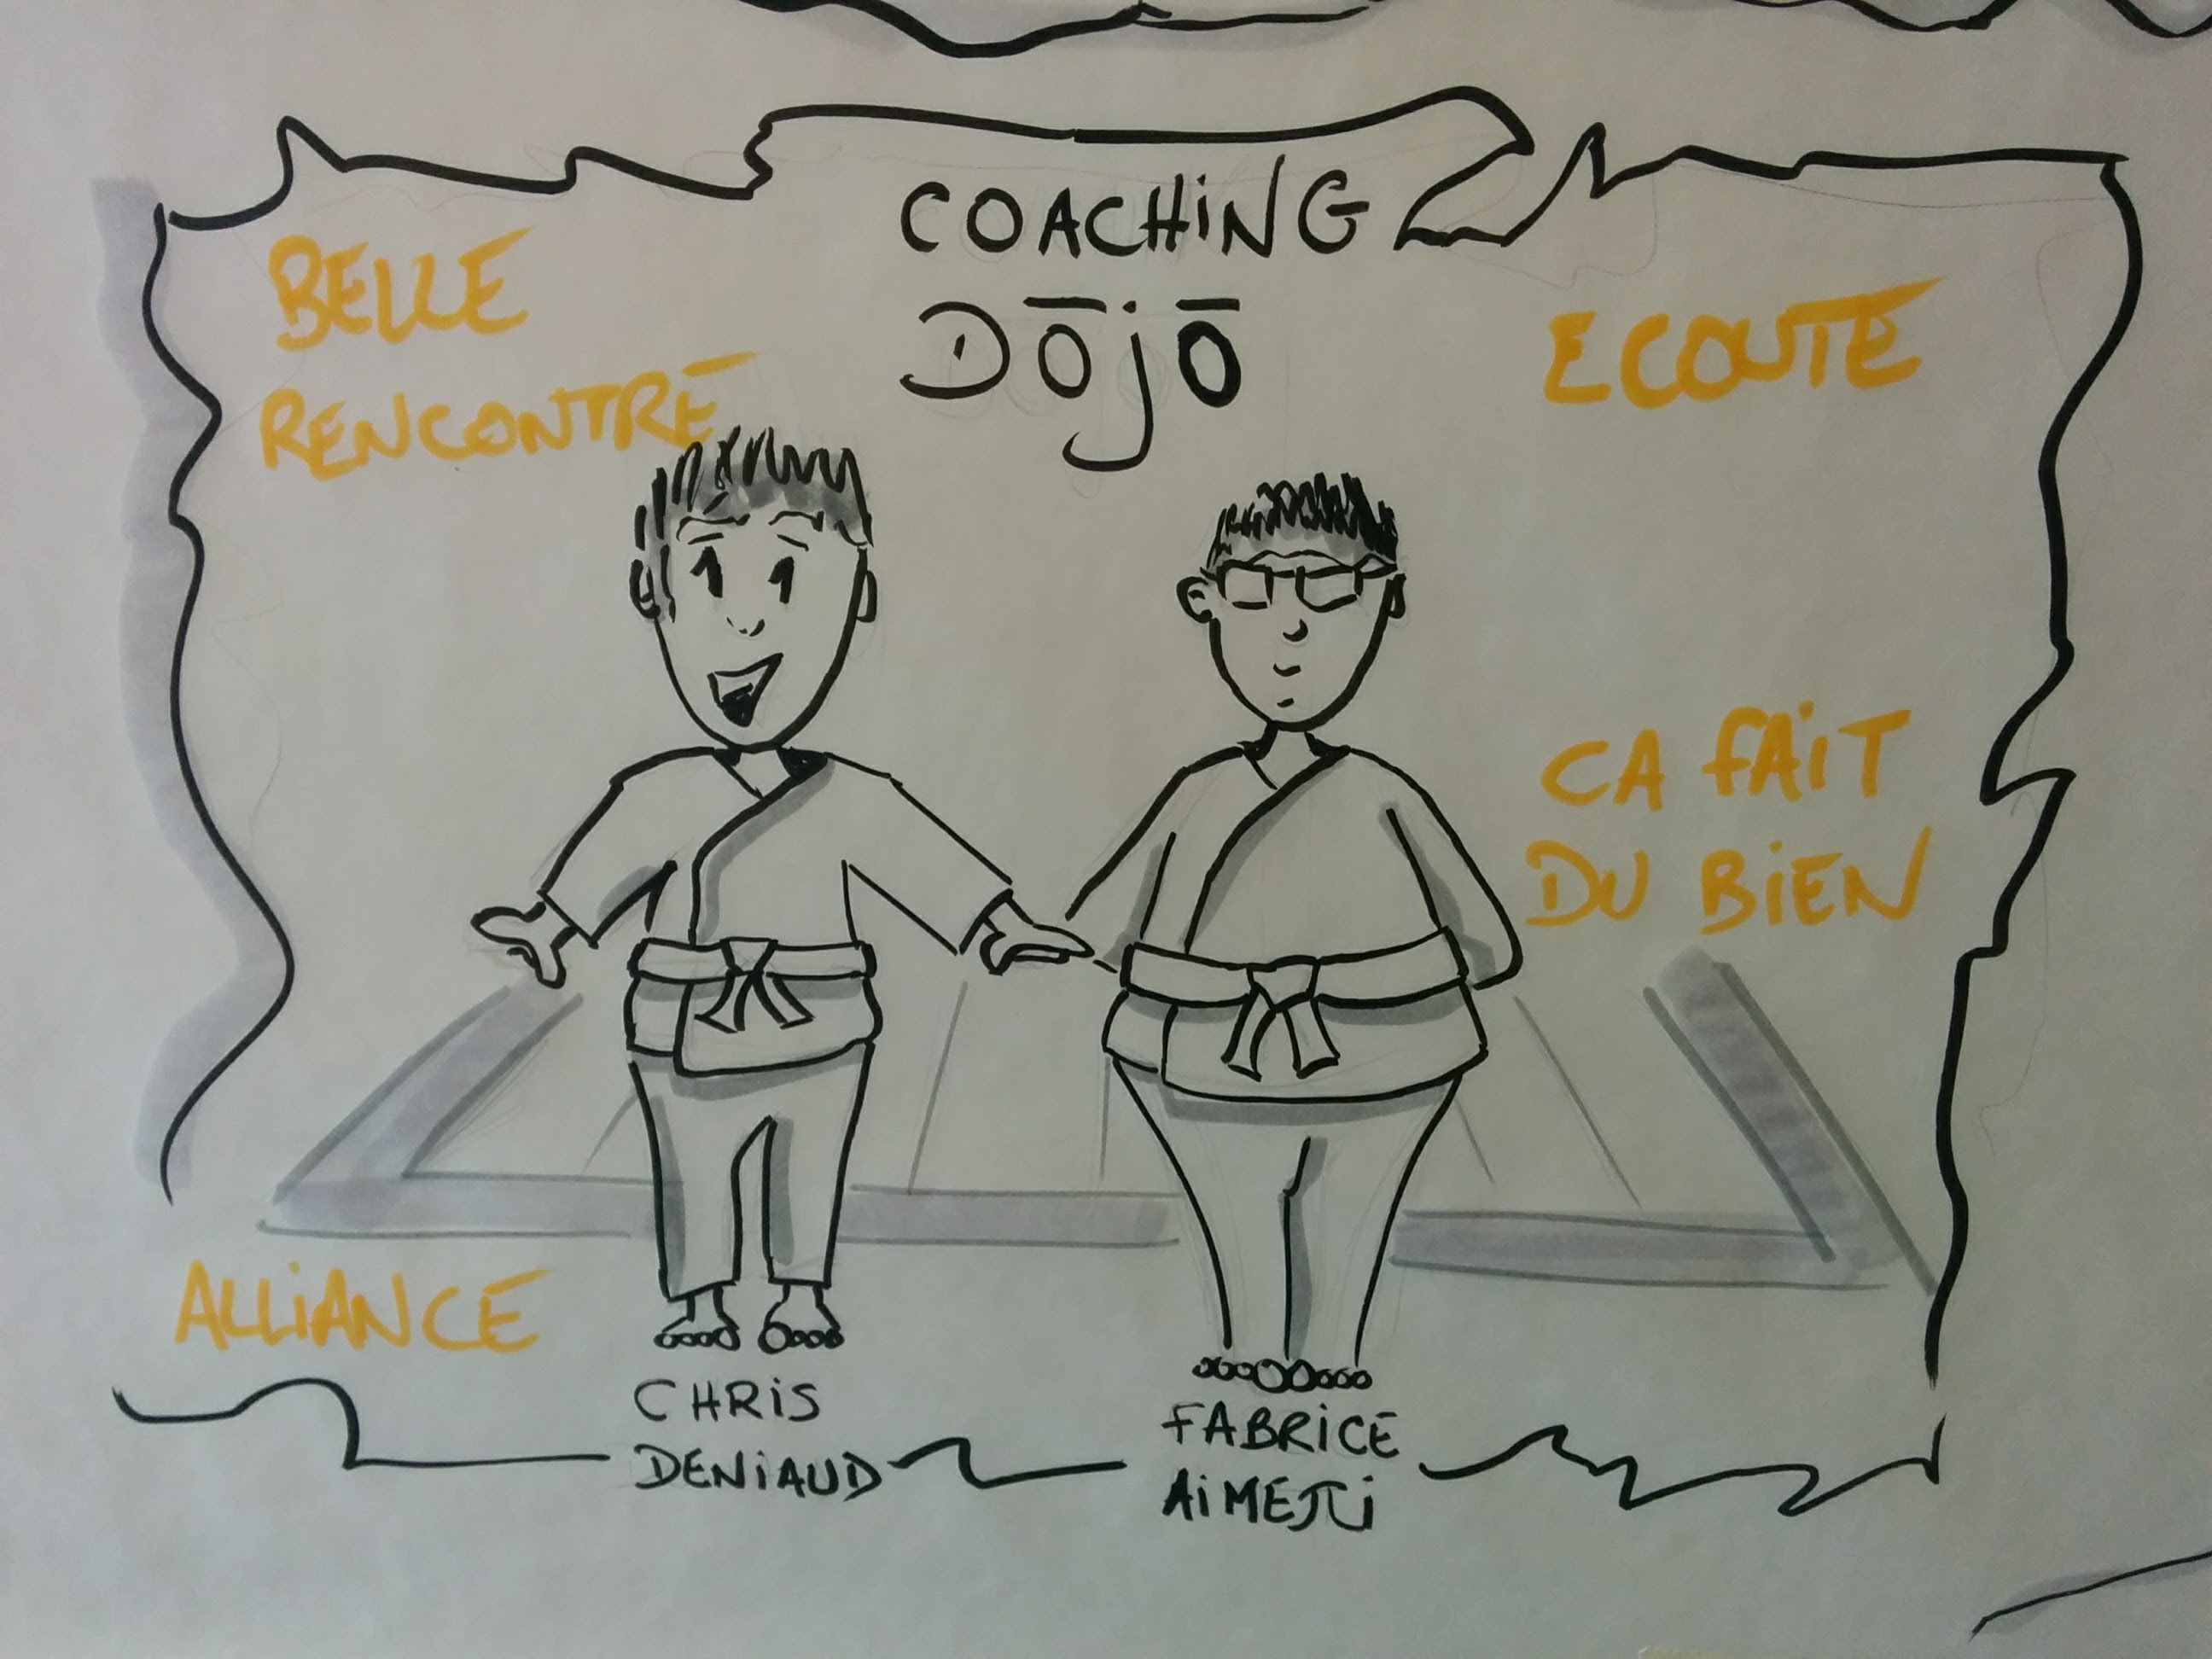 COACHiNG
DōJō
BELLE
RENCONTRE
ECOUTE
CA FAiT
DU BiEN
ALLiANCE
CHRiS
DENiAUD
FABRiCE
AiMETTi